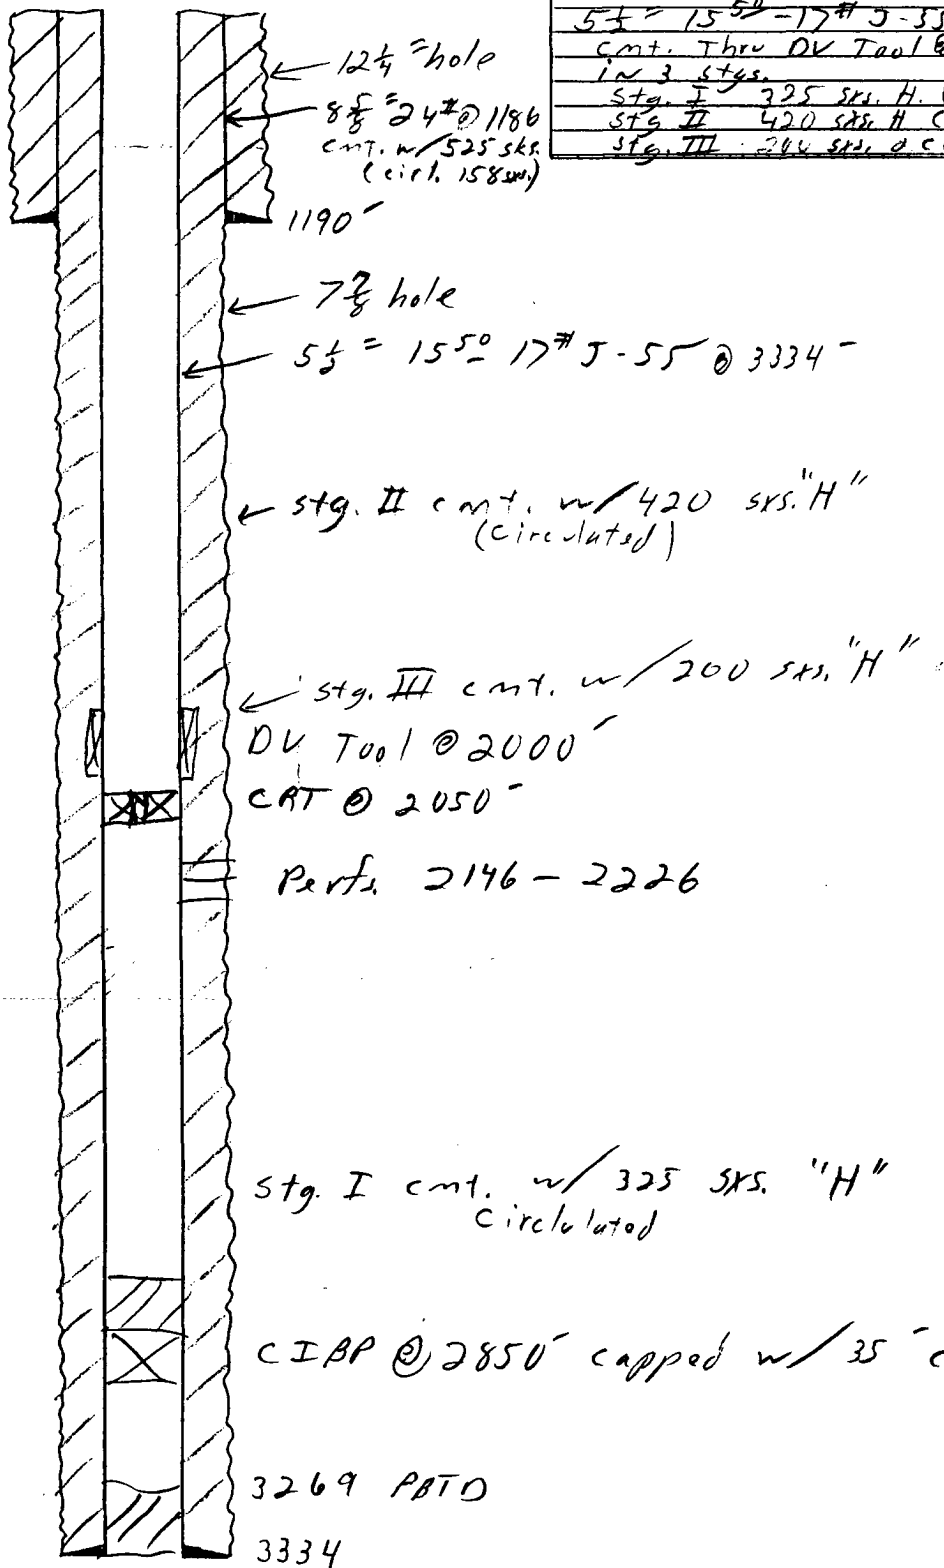 5 1/2" 15 50 - 17# J-55
Cmt. Thru DV Tool
in 3 stgs.
Stg. I 325 sxs. H.
Stg II 420 sxs. H
Stg. III sxs.
12 1/4" hole
8 5/8" 24# @ 1186
cmt. w/ 525 sks.
(circl. 158 sxs.)
1190'
7 7/8 hole
5 1/2" 15 50 - 17# J-55 @ 3334'
stg. II cmt. w/ 420 sxs. "H"
(Circulated)
stg. III cmt. w/ 200 sxs. "H"
DV Tool @ 2000'
CRT @ 2050'
Perfs. 2146 - 2226
Stg. I cmt. w/ 325 sxs. "H"
Circlulated
CIBP @ 2850' capped w/ 35'
3269 PBTD
3334